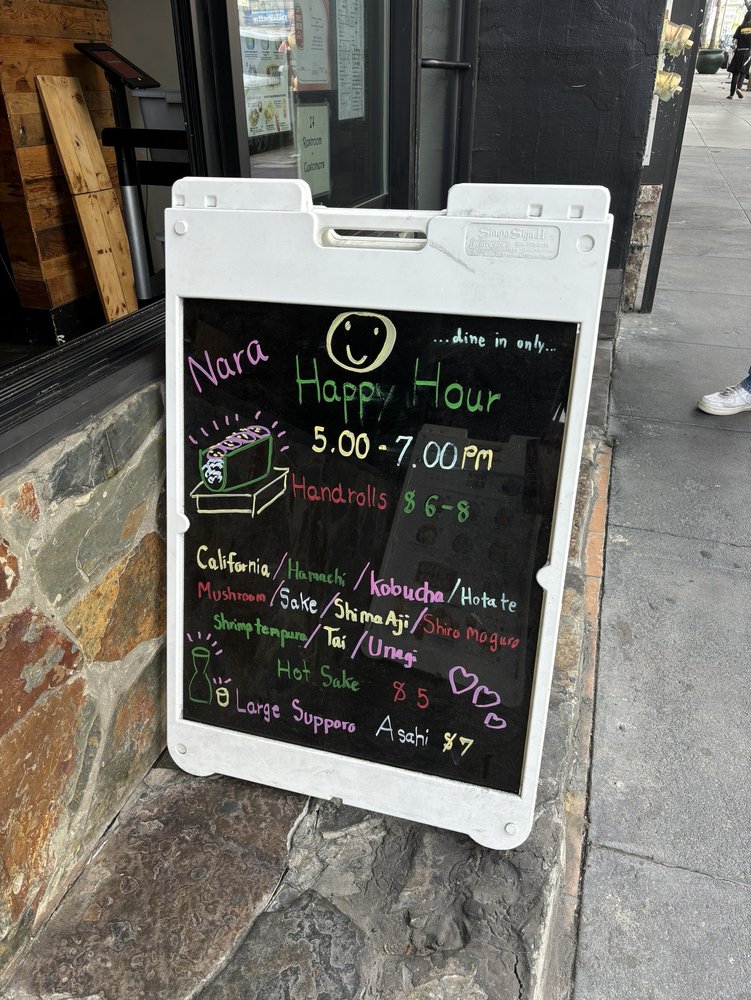 Restroom
Customers
...dine in only...
Nara
Happy Hour
5.00-7.00PM
Handrolls $6-8
California/Hamachi/Kobucha/Hotate
Mushroom/Sake/Shima Aji/Shiro Maguro
Shrimp tempura/Tai/Unagi
Hot Sake $5
Large Supporo Asahi $7